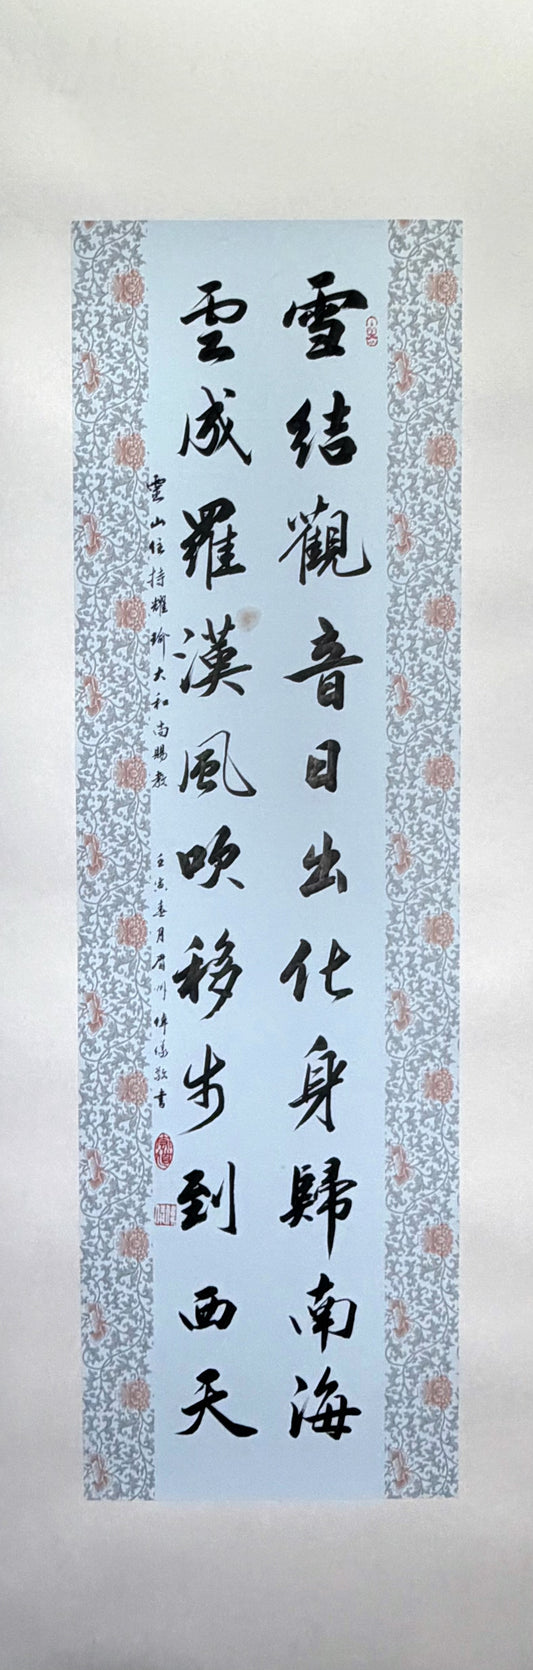 雪結觀音日出化身歸南海
雲成羅漢風吹移步到西天
雲山住持耀瑜大和尚賜教
壬寅春月眉川 敬書